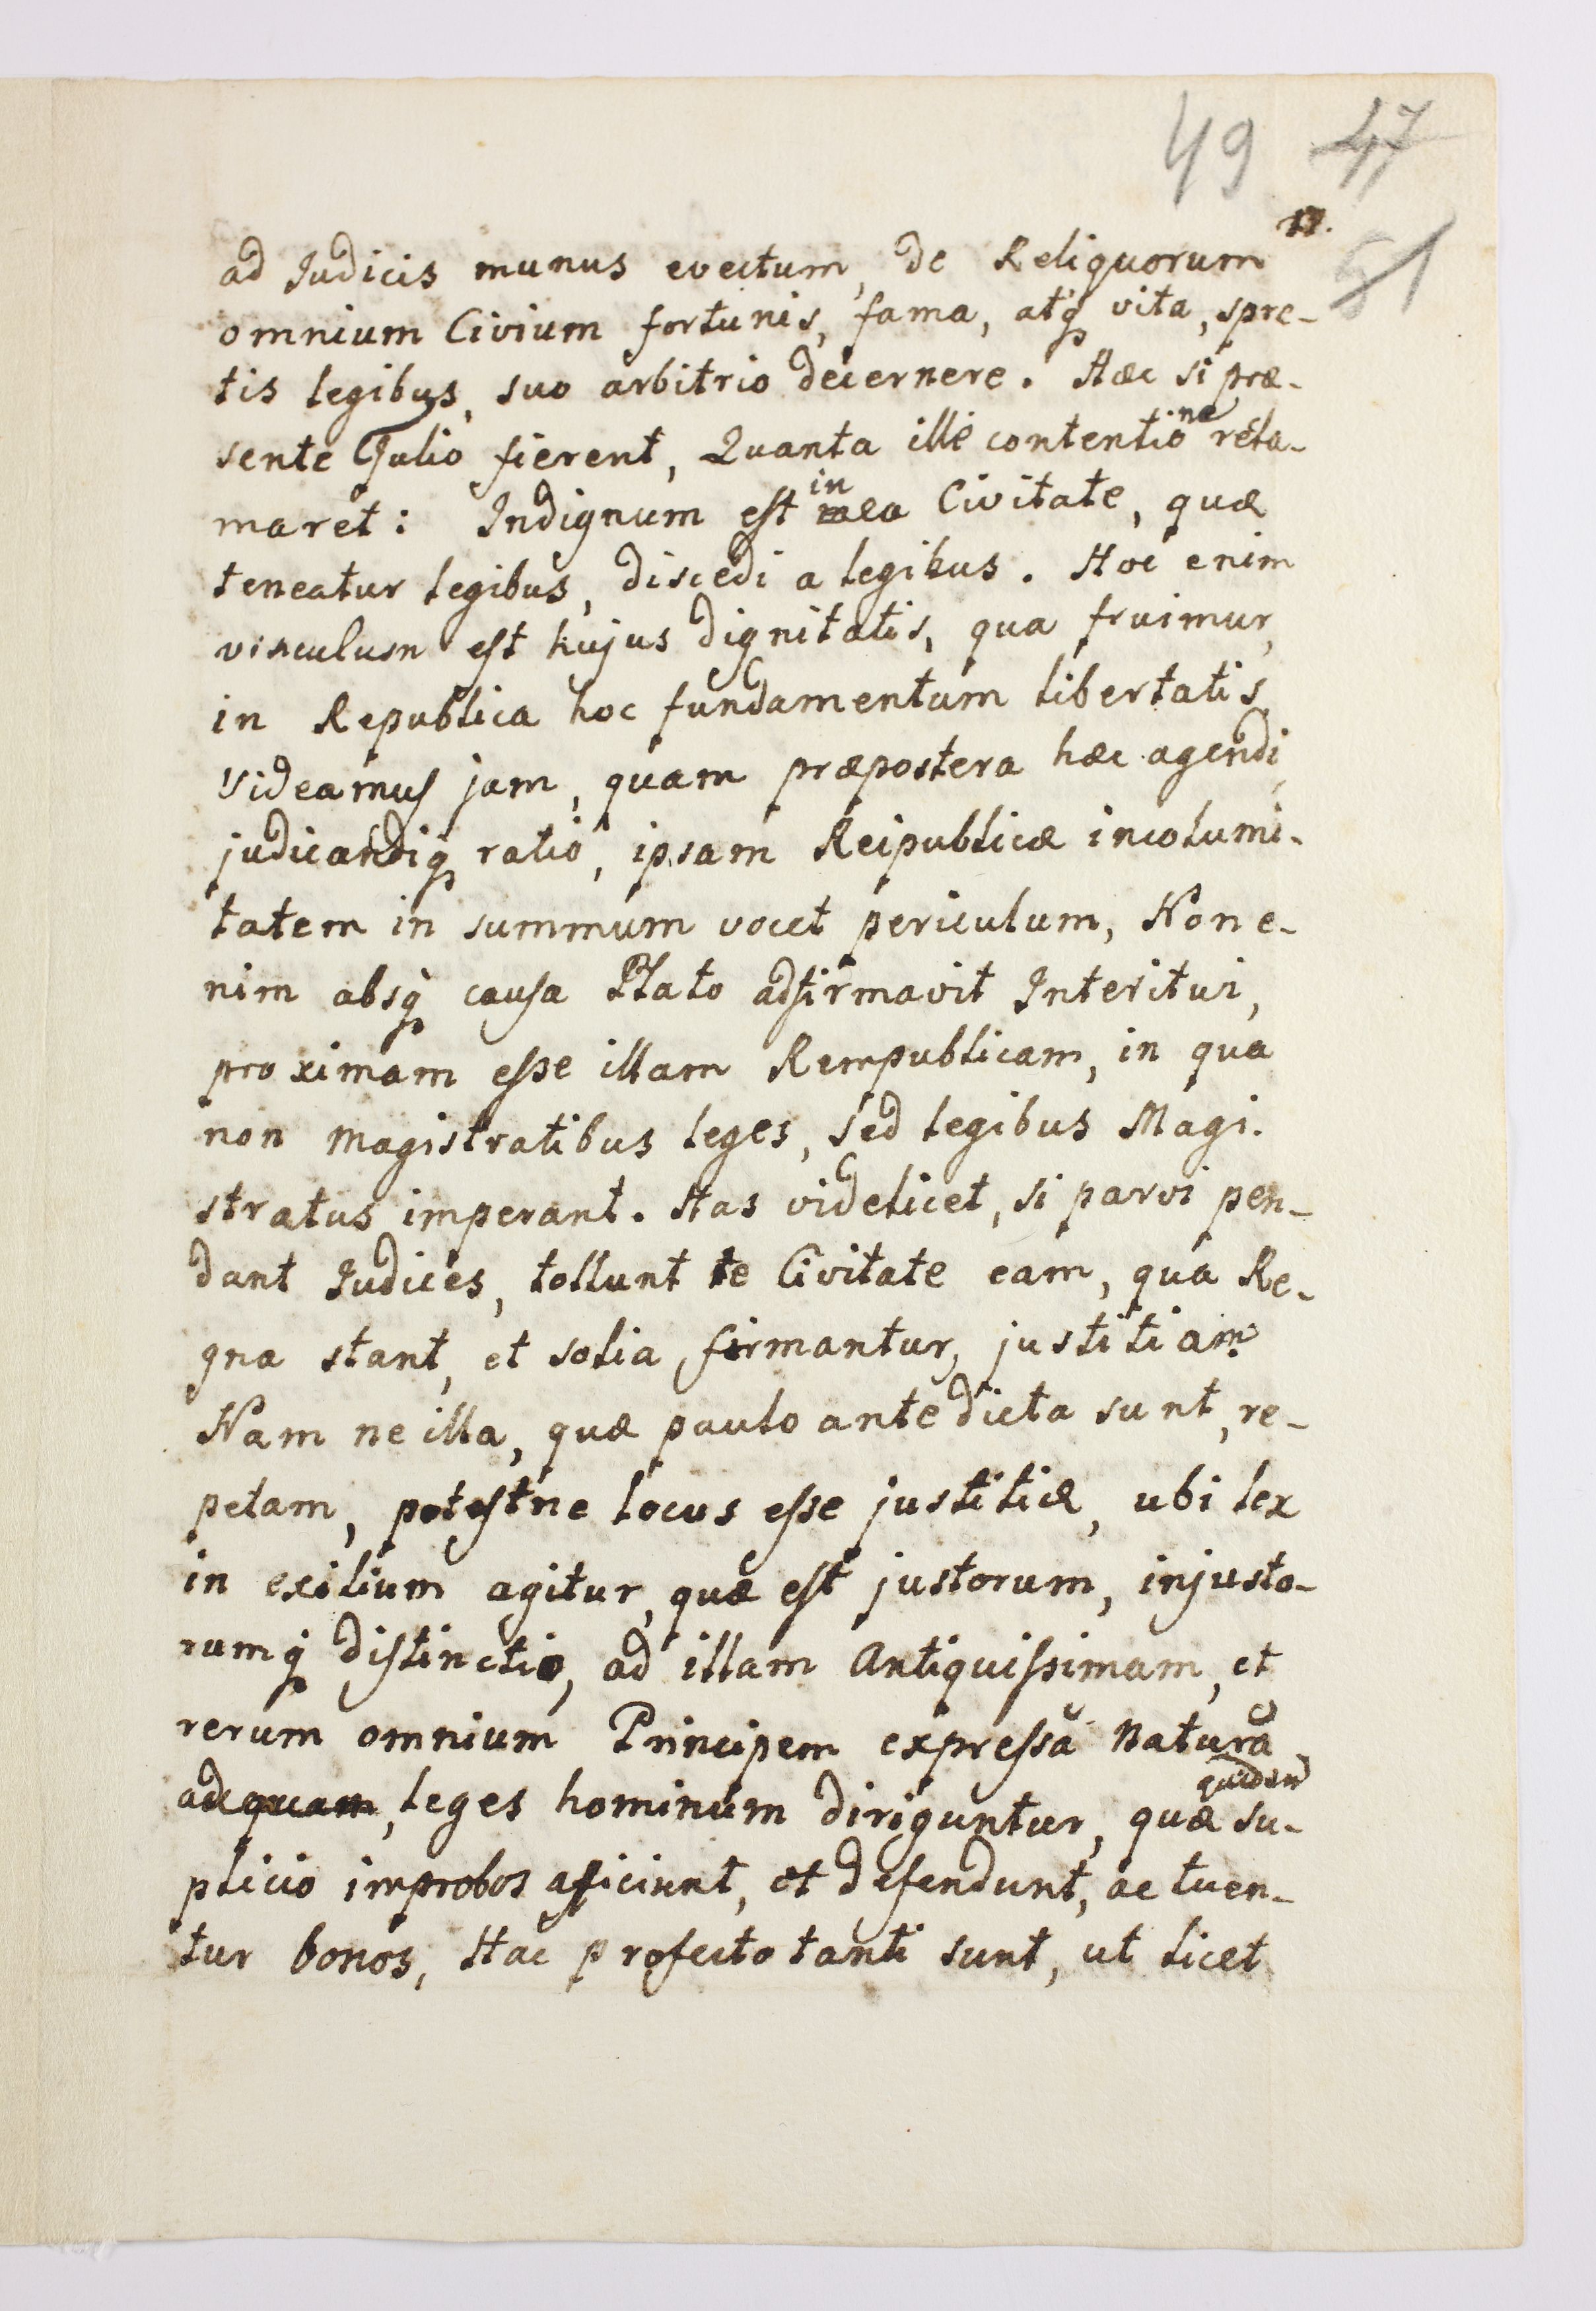 49 47
17.
51
ad Judicis munus evectum, de Reliquorum
omnium Civium fortunis, fama, atq vita, spre-
tis legibus, suo arbitrio decernere. Hæc si præ-
sente Tulio fierent, Quanta ille contentione recla-
maret: Indignum est in ea Civitate, quæ
teneatur legibus, discedi a legibus. Hoc enim
vinculum est hujus dignitatis, qua fruimur,
in Republica hoc fundamentum libertatis,
Videamus jam, quam præpostera hæc agendi,
judicandiq ratio, ipsam Reipublicæ incolumi-
tatem in summum vocet periculum, Non e-
nim absq causa Plato adfirmavit Interitui,
proximam esse illam Rempublicam, in qua
non magistratibus leges, sed legibus Magi-
stratus imperant. Has videlicet, si parvi pen-
dant Judices, tollunt te Civitate eam, qua Re-
gna stant, et solia firmantur, justitiam.
Nam ne illa, quæ paulo ante dicta sunt, re-
petam, potestne locus esse justitiæ, ubi lex
in exilium agitur, quæ est justorum, injusto-
rumq distinctio, ad illam Antiquissimam, et
rerum omnium Principem expressa Natura,
ad quam, leges hominum diriguntur, quæ quidem su-
plicio improbos aficiunt, et defendunt, ac tuen-
tur bonos, Hac profecto tanti sunt, ut licet